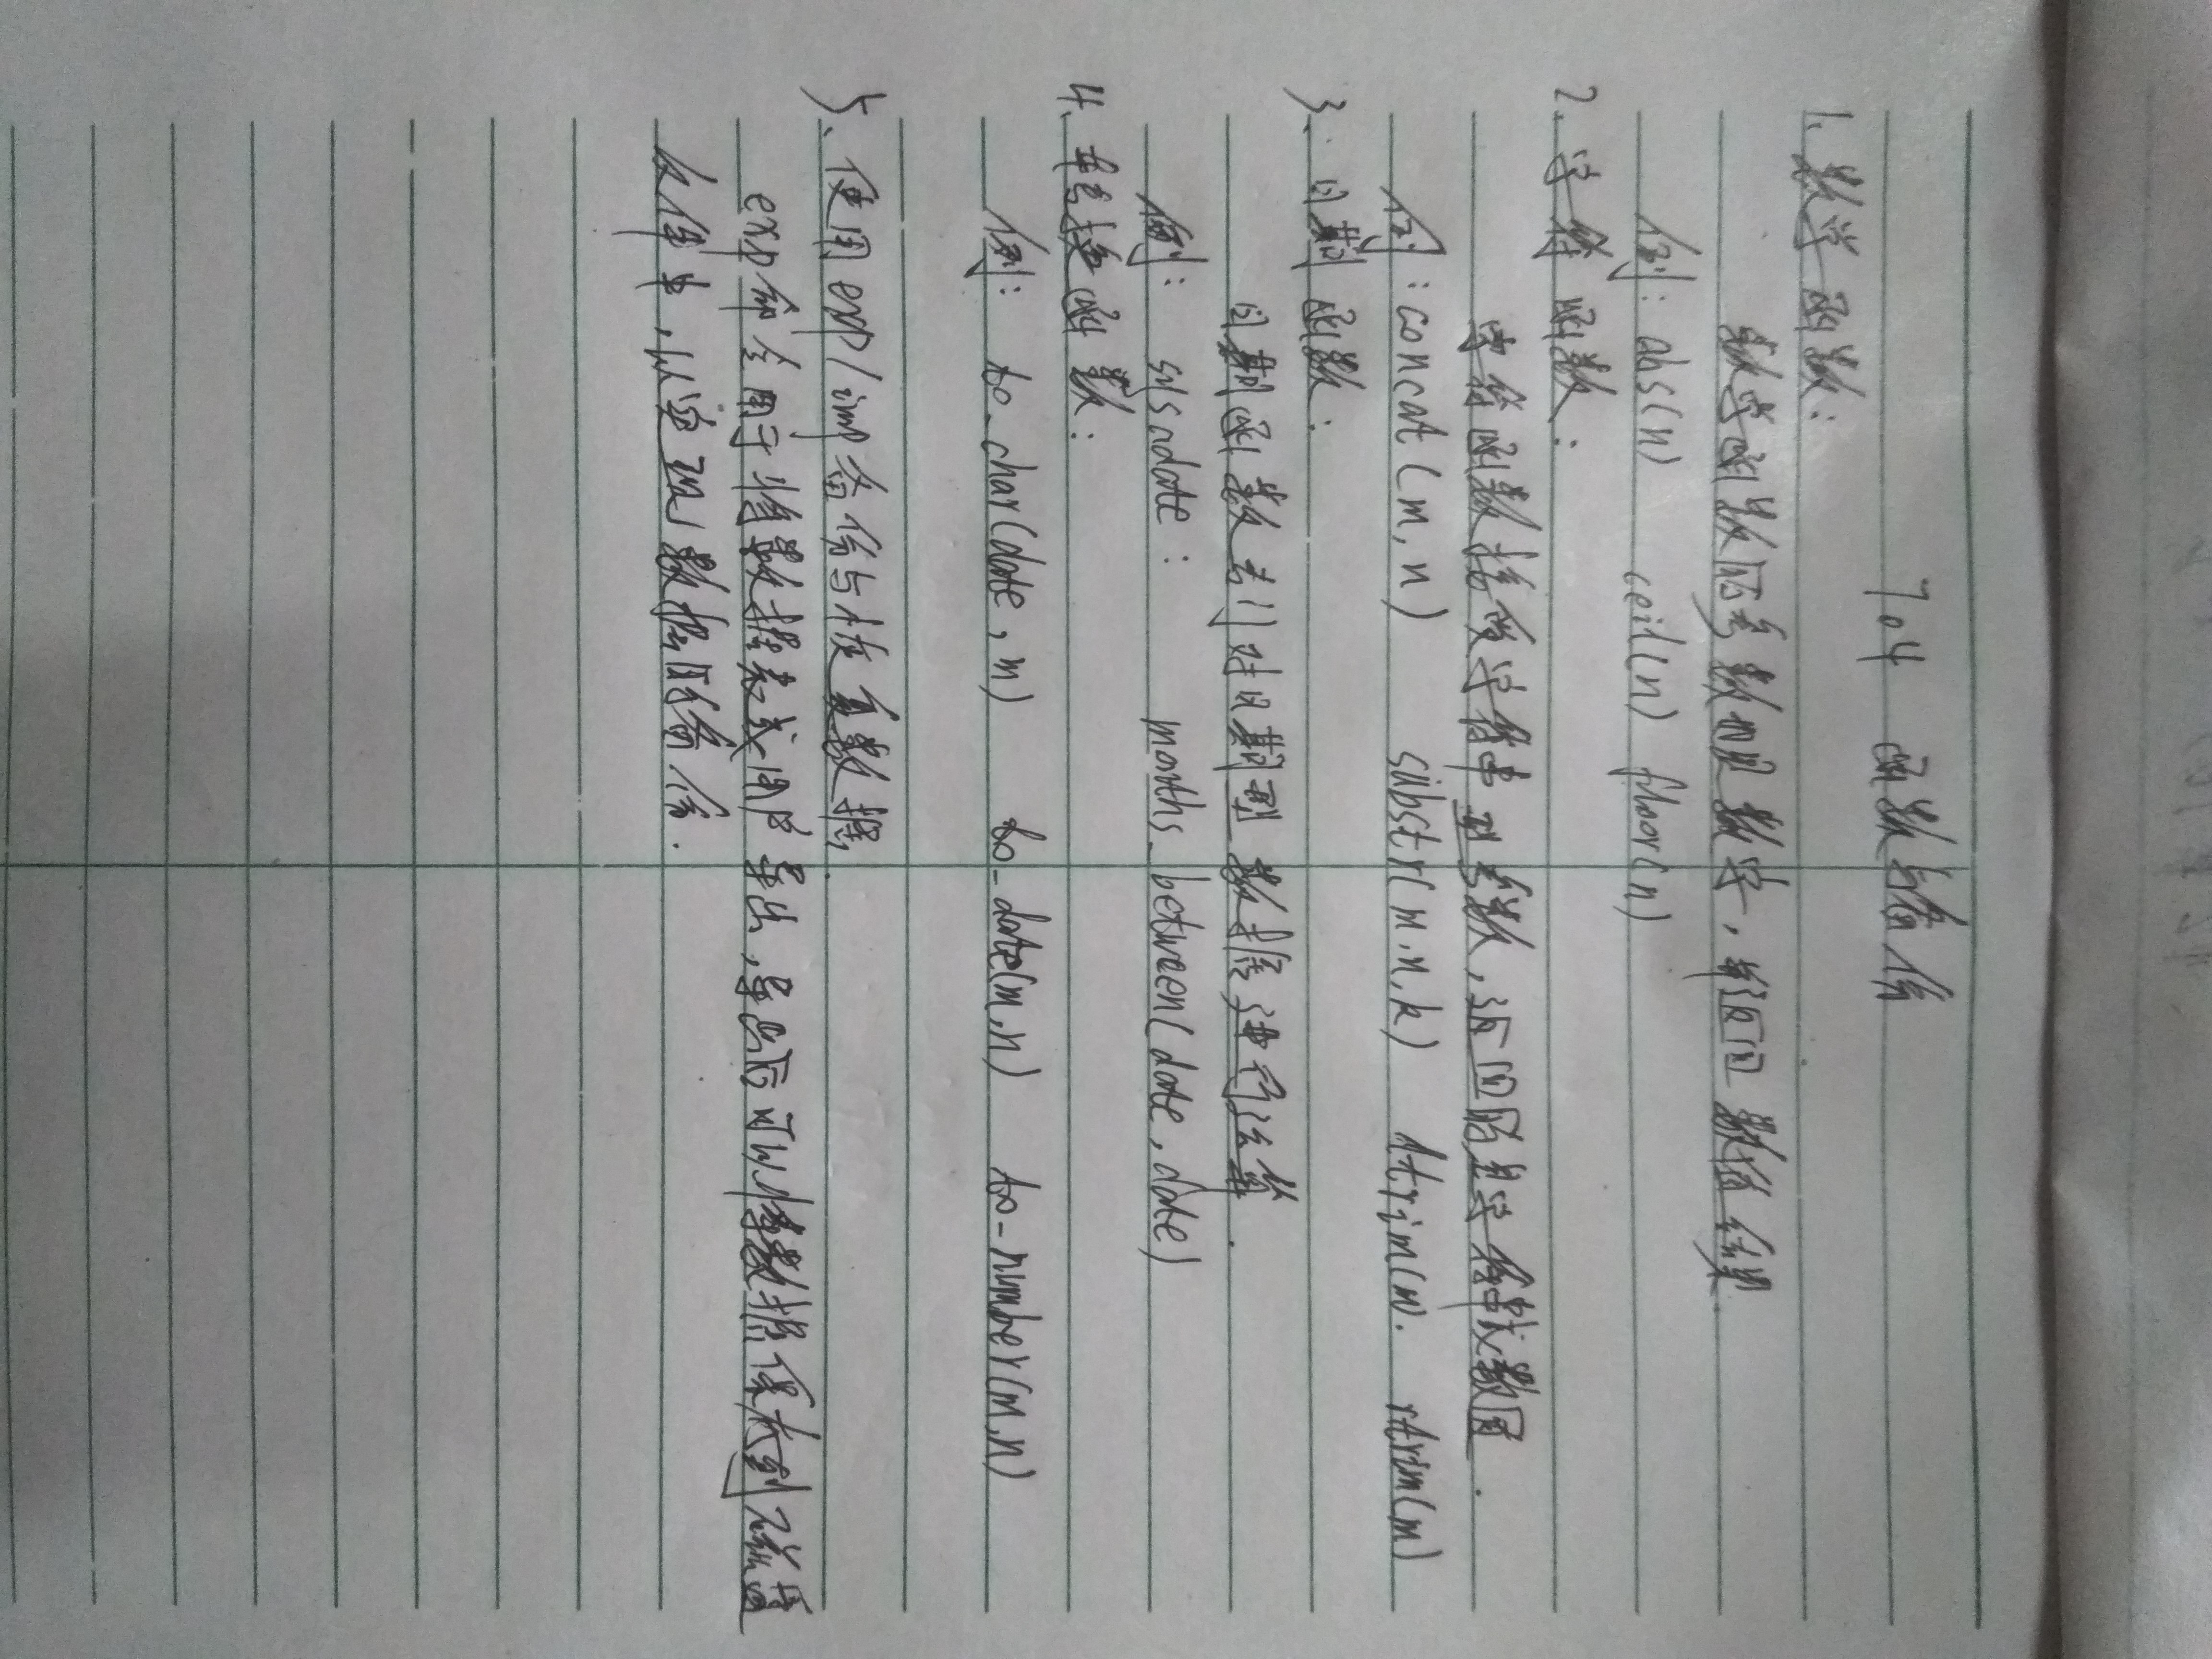 704 函数与备份
1. 数学函数:
数学函数所参数的是数字,并返回数值结果.
例: abs(n) ceil(n) floor(n)
2. 字符函数:
字符函数接受字符串型参数,返回的是字符串或数值.
例: concat(m,n) substr(m.n,k) ltrim(m). rtrim(m)
3. 日期函数:
日期函数专门对日期型数据进行运算.
例: sysadate: months_between(date,date)
4. 转换函数:
例: to_char(date,m) to_date(m,n) to_number(m,n)
5、使用exp/imp备份与恢复数据.
exp命令用于将数据表或用户导出,导出后可以将数据保存到磁盘
或信中,以实现数据的备份.